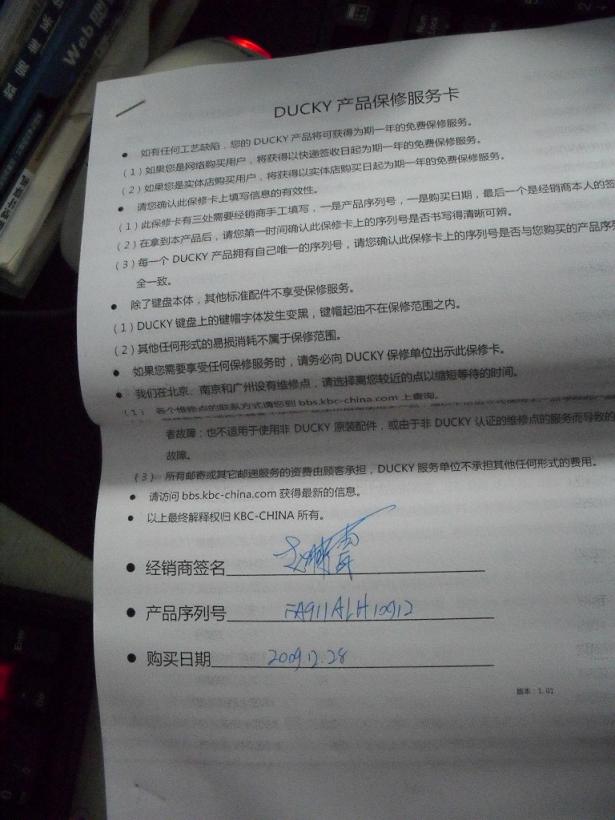 Web
DUCKY 产品保修服务卡
● 如有任何工艺缺陷，您的 DUCKY 产品将可获得为期一年的免费保修服务。
（1）如果您是网络购买用户，将获得以快递签收日起为期一年的免费保修服务。
（2）如果您是实体店购买用户，将获得以实体店购买日起为期一年的免费保修服务。
● 请您确认此保修卡上填写信息的有效性。
（1）此保修卡有三处需要经销商手工填写，一是产品序列号，一是购买日期，最后一个是经销商本人的签
（2）在拿到本产品后，请您第一时间确认此保修卡上的序列号是否书写得清晰可辨。
（3）每一个 DUCKY 产品拥有自己唯一的序列号，请您确认此保修卡上的序列号是否与您购买的产品序列
全一致。
● 除了键盘本体，其他标准配件不享受保修服务。
（1）DUCKY 键盘上的键帽字体发生变黑，键帽起油不在保修范围之内。
（2）其他任何形式的易损消耗不属于保修范围。
● 如果您需要享受任何保修服务时，请务必向 DUCKY 保修单位出示此保修卡。
● 我们在北京、南京和广州设有维修点，请选择离您较近的点以缩短等待的时间。
（1） 各个维修点的联系方式请您到 bbs.kbc-china.com 上查询。
者故障；也不适用于使用非 DUCKY 原装配件，或由于非 DUCKY 认证的维修点的服务而导致的
故障。
（3） 所有邮寄或其它邮递服务的资费由顾客承担，DUCKY 服务单位不承担其他任何形式的费用。
● 请访问 bbs.kbc-china.com 获得最新的信息。
● 以上最终解释权归 KBC-CHINA 所有。
● 经销商签名
● 产品序列号 FA911ALH10912
● 购买日期 2009.12.28
版本：1.01